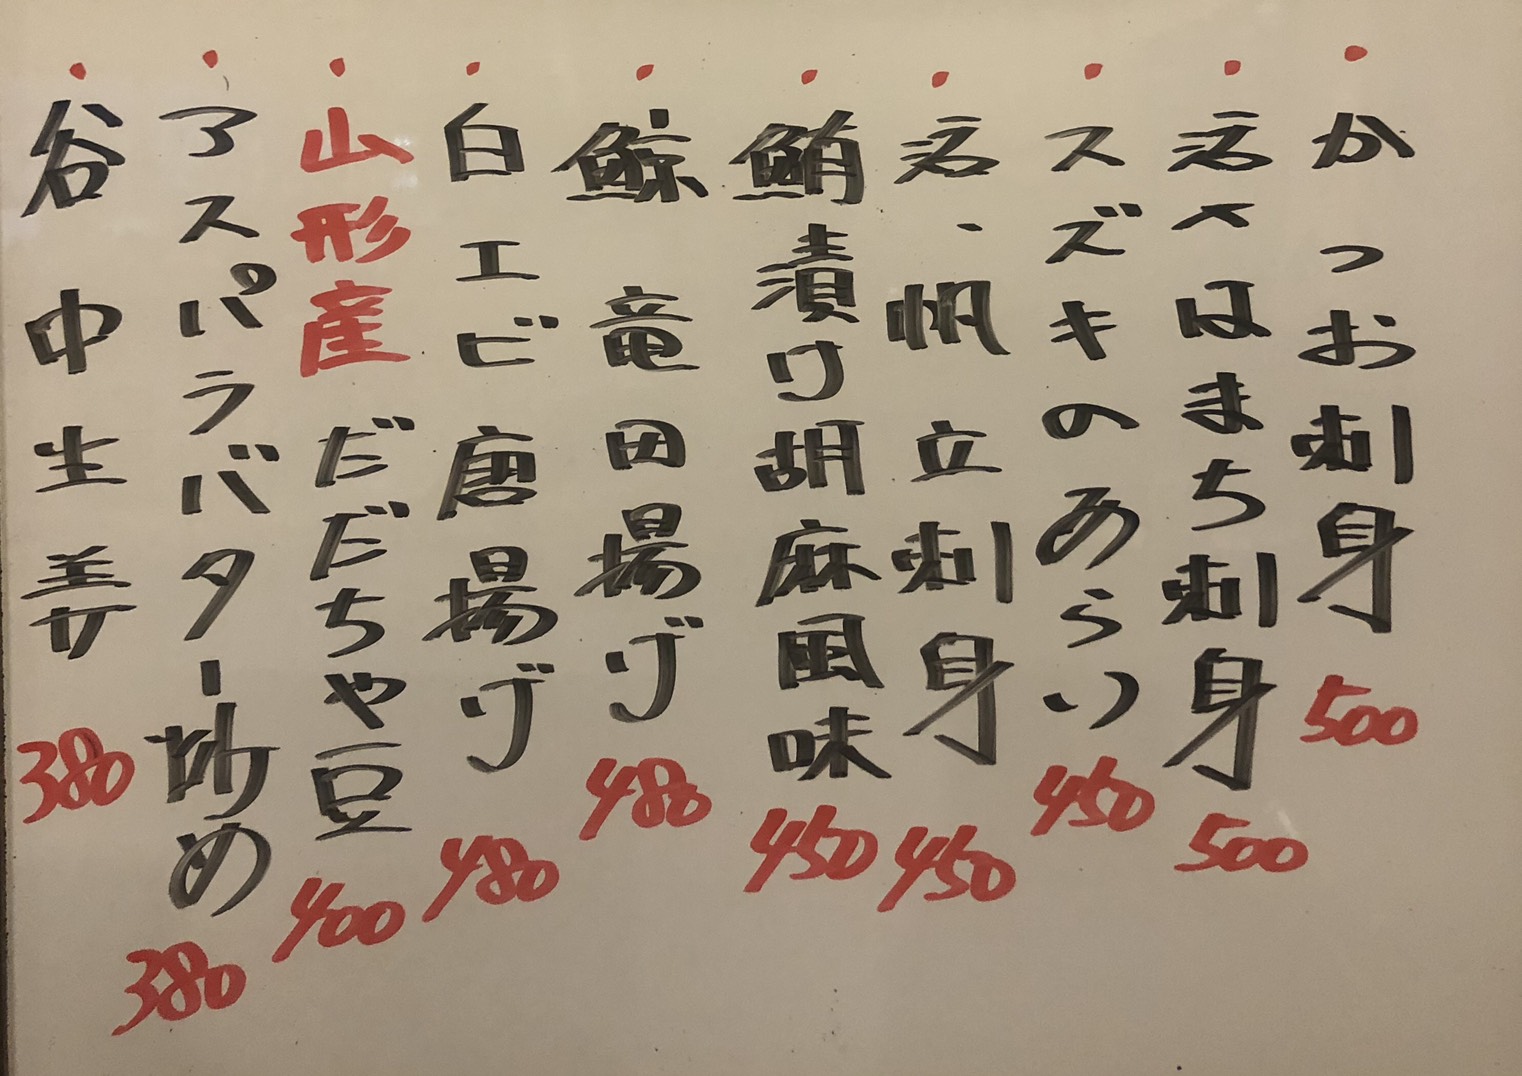 ・かつお刺身 500
・活〆はまち刺身 500
・スズキのあらい 450
・活、帆立刺身 450
・鮪漬け胡麻風味 450
・鯨竜田揚げ 480
・白エビ唐揚げ 480
・山形産だだちゃ豆 400
・アスパラバター炒め 380
・谷中生姜 380